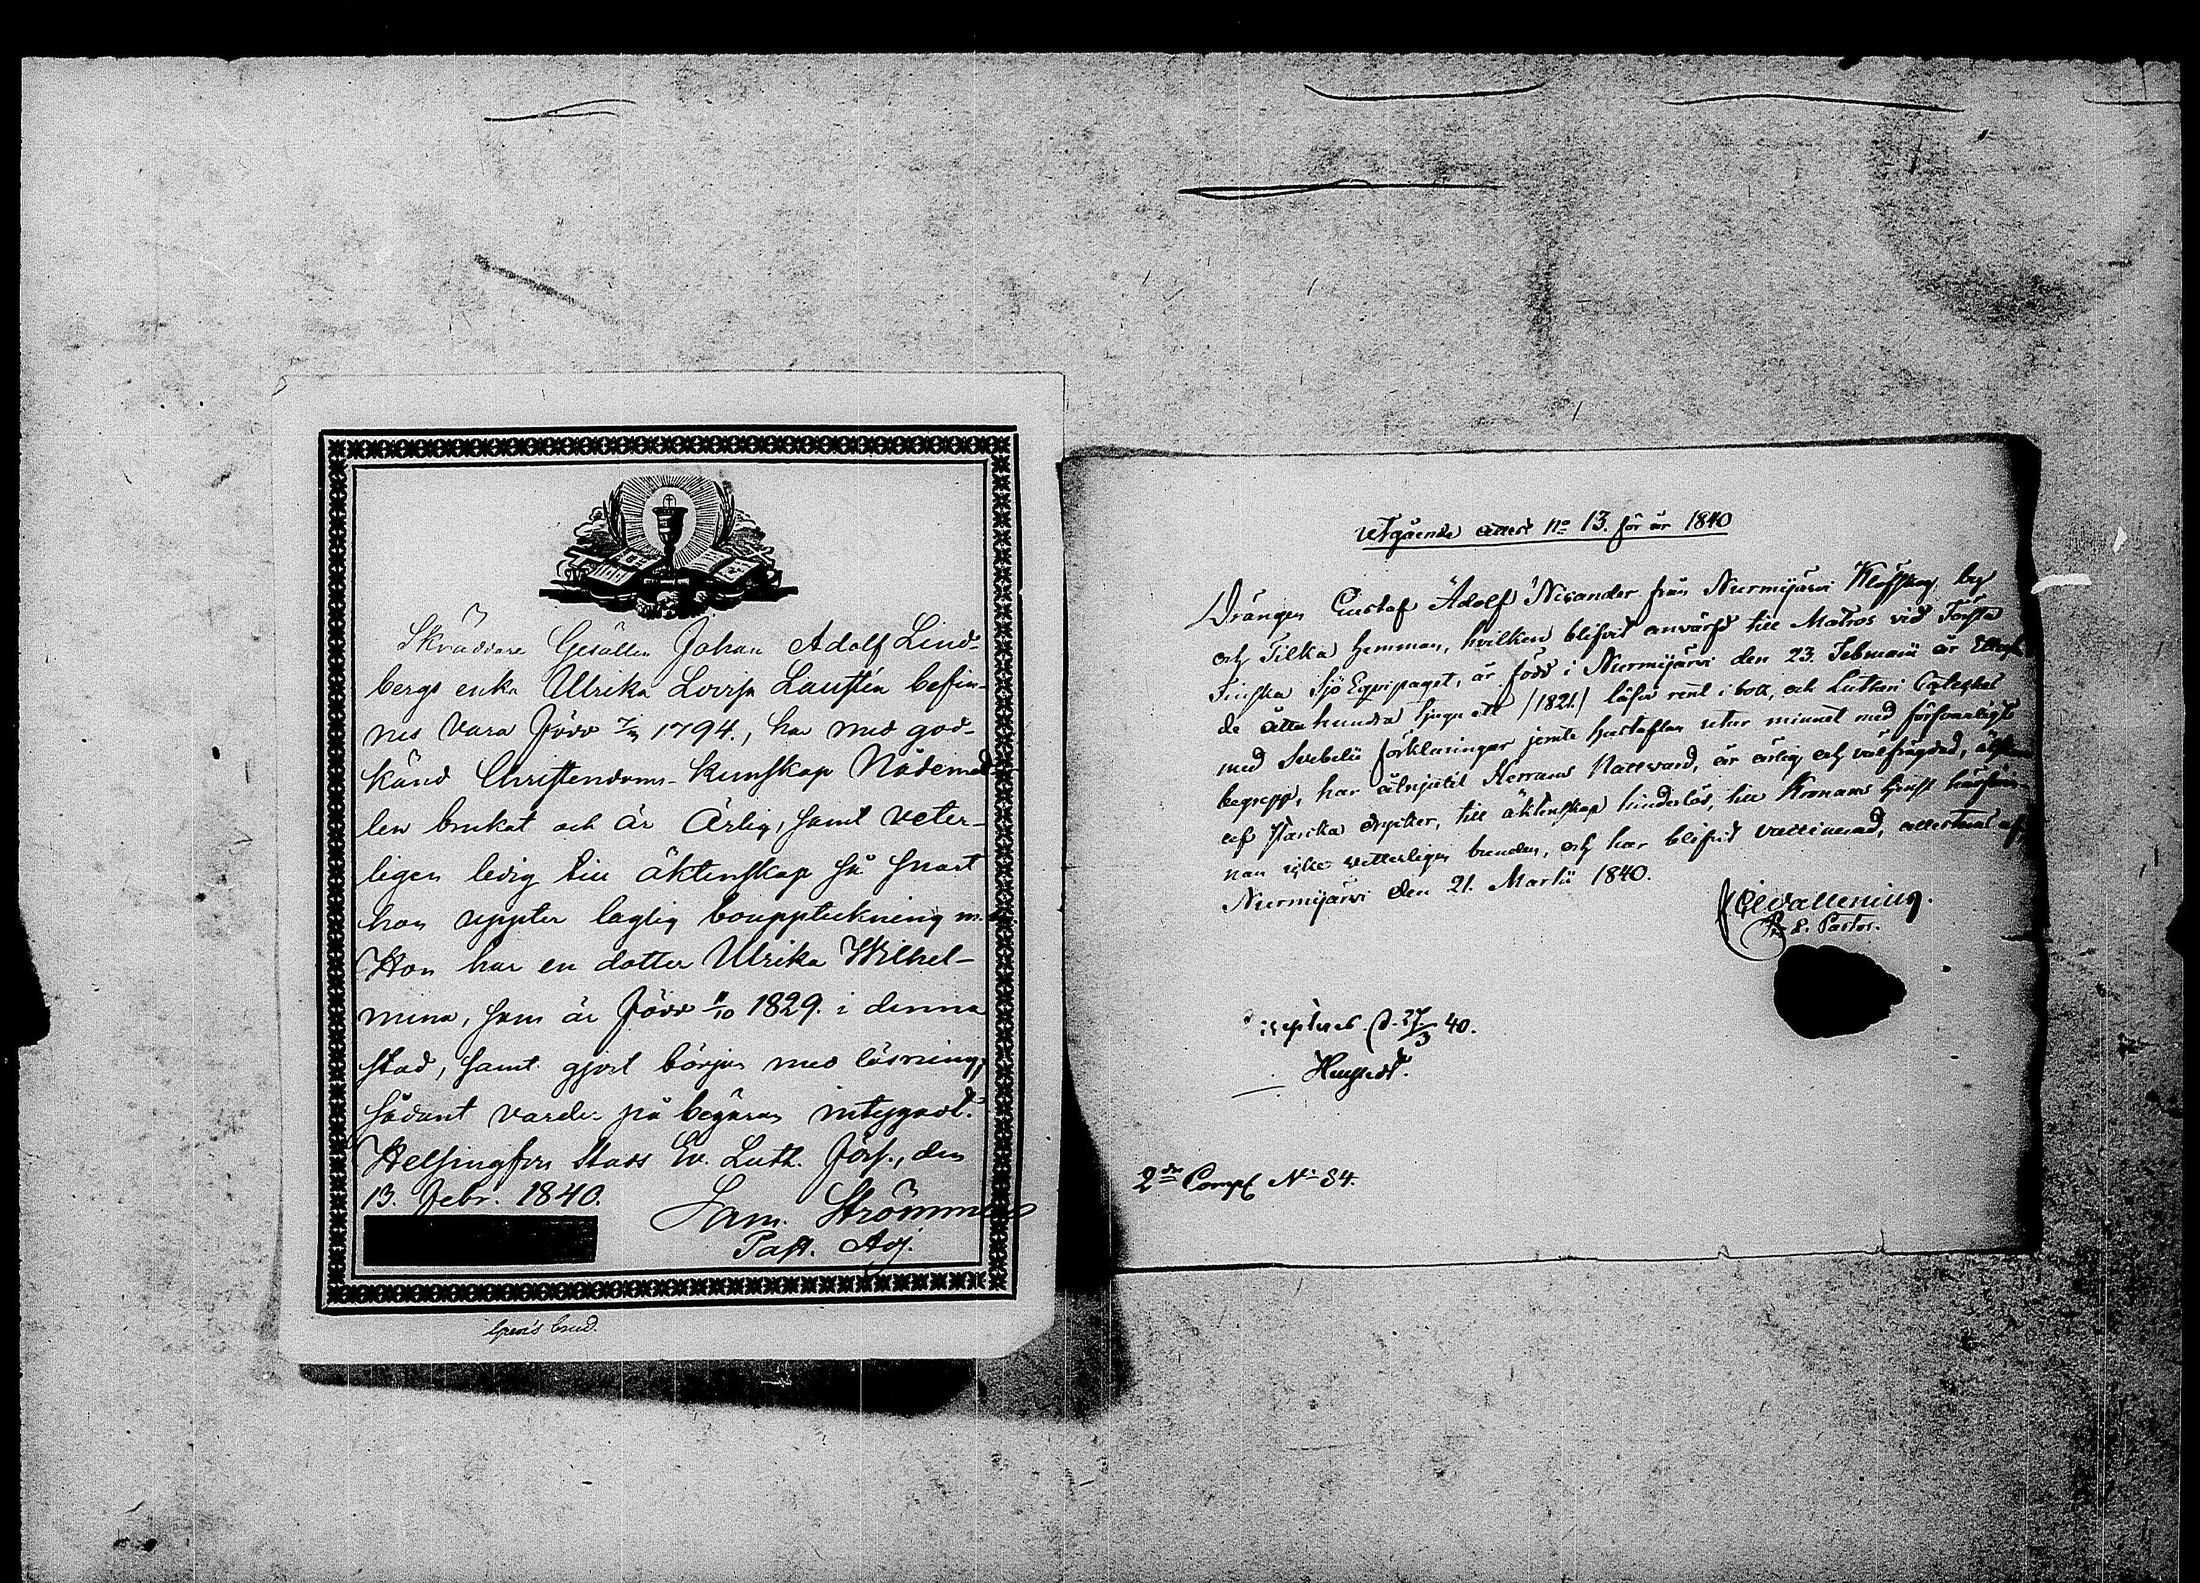 Skräddare Gesällen Johan Adolf Lind-
bergs enka Ulrika Lovisa Laustén befin-
nes vara född 1794., har med god-
känd Christendoms-kunskap Nådemed-
len brukat och är Ärlig, samt veter-
ligen ledig till äktenskap så snart
hon uppter laglig bouppteckning m.m.
Hon har en dotter Ulrika Wilhel-
mina, som är född 11/10 1829. i denna
stad, samt gjort början med läsning;
sådant varder på begäran intygadt.
Helsingfors Stads Ev. Luth. Förs., den
13. Febr. 1840.
Sam. Strömm
Past. Adj.
Utgående attest No 13. för år 1840
Drängen Gustaf Adolf Nicander från Nurmijärvi Klöfskog by
och Tilka hemman, hvilken blifvit anvärfd till Matros vid Första
Finska Sjö Eqvipaget, är född i Nurmijärvi den 23. Februarii år Ett
de åtta hundra tjugu ett /1821./ läser rent i bok, och Lutheri Cateches
med Svebelii förklaringar jemte hustaflan utur minnet med försvarligt
begrepp, har åtnjutit Herrans Nattvard, är ärlig och välfrägdad,
af starka drycker, till äktenskap hinderlös, till Kronans tjenst härifrån
nan icke vetterligen bunden, och har blifvit vaccinerad, attesteras af,
Nurmijärvi den 21. Martii 1840.
Wallenius.
Pastor.
d. 27/3 40.
2dra Comp N: 84.